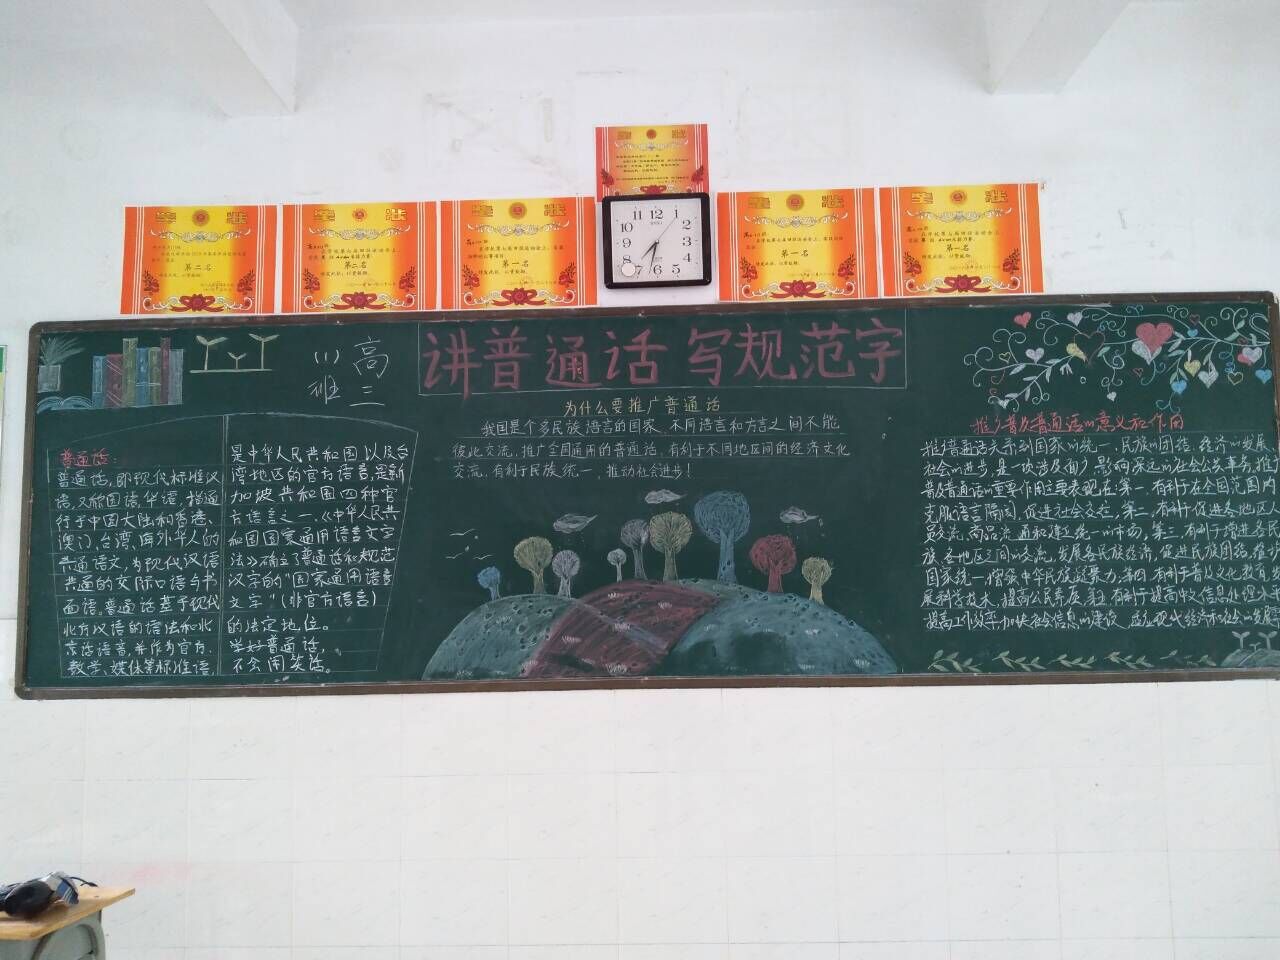 奖状
奖状
奖状
奖状
奖状
奖状
第二名
第二名
第一名
第一名
第一名
11 12 1
10 2
9 3
8 4
7 6 5
高三
(1)班
讲普通话 写规范字
普通话:
普通话,即现代标准汉
语,又称国语,华语,指通
行于中国大陆和香港、
澳门、台湾、海外华人的
共通语文,为现代汉语
共通的交际口语与书
面语。普通话基于现代
北方汉语的语法和北
京话语音,并作为官方、
教学、媒体等标准语,
是中华人民共和国以及台
湾地区的官方语言,是新
加坡共和国四种官
方语言之一。《中华人民共
和国国家通用语言文字
法》确立了普通话和规范
汉字的"国家通用语言
文字"(非官方语言)
的法定地位。
学好普通话,
不会闹笑话。
为什么要推广普通话
我国是个多民族语言的国家,不同语言和方言之间不能
彼此交流,推广全国通用的普通话,有利于不同地区间的经济文化
交流,有利于民族统一,推动社会进步!
推广普及普通话的意义和作用
推广普通话关系到国家的统一、民族的团结、经济的发展、
社会的进步,是一项涉及面广、影响深远的社会公共事务,推广
普及普通话的重要作用主要表现在:第一,有利于在全国范围内
克服语言隔阂,促进社会交往,第二,有利于促进各地区人
员交流,商品流通和建立统一的市场,第三,有利于增进各民
族、各地区之间的交流,发展各民族经济,促进民族团结,维护
国家统一,增强中华民族凝聚力,第四,有利于普及文化教育,发
展科学技术,提高公民素质,第五,有利于提高中文信息处理水平
提高工作效率,加快社会信息的建设,适应现代经济和社会的发展